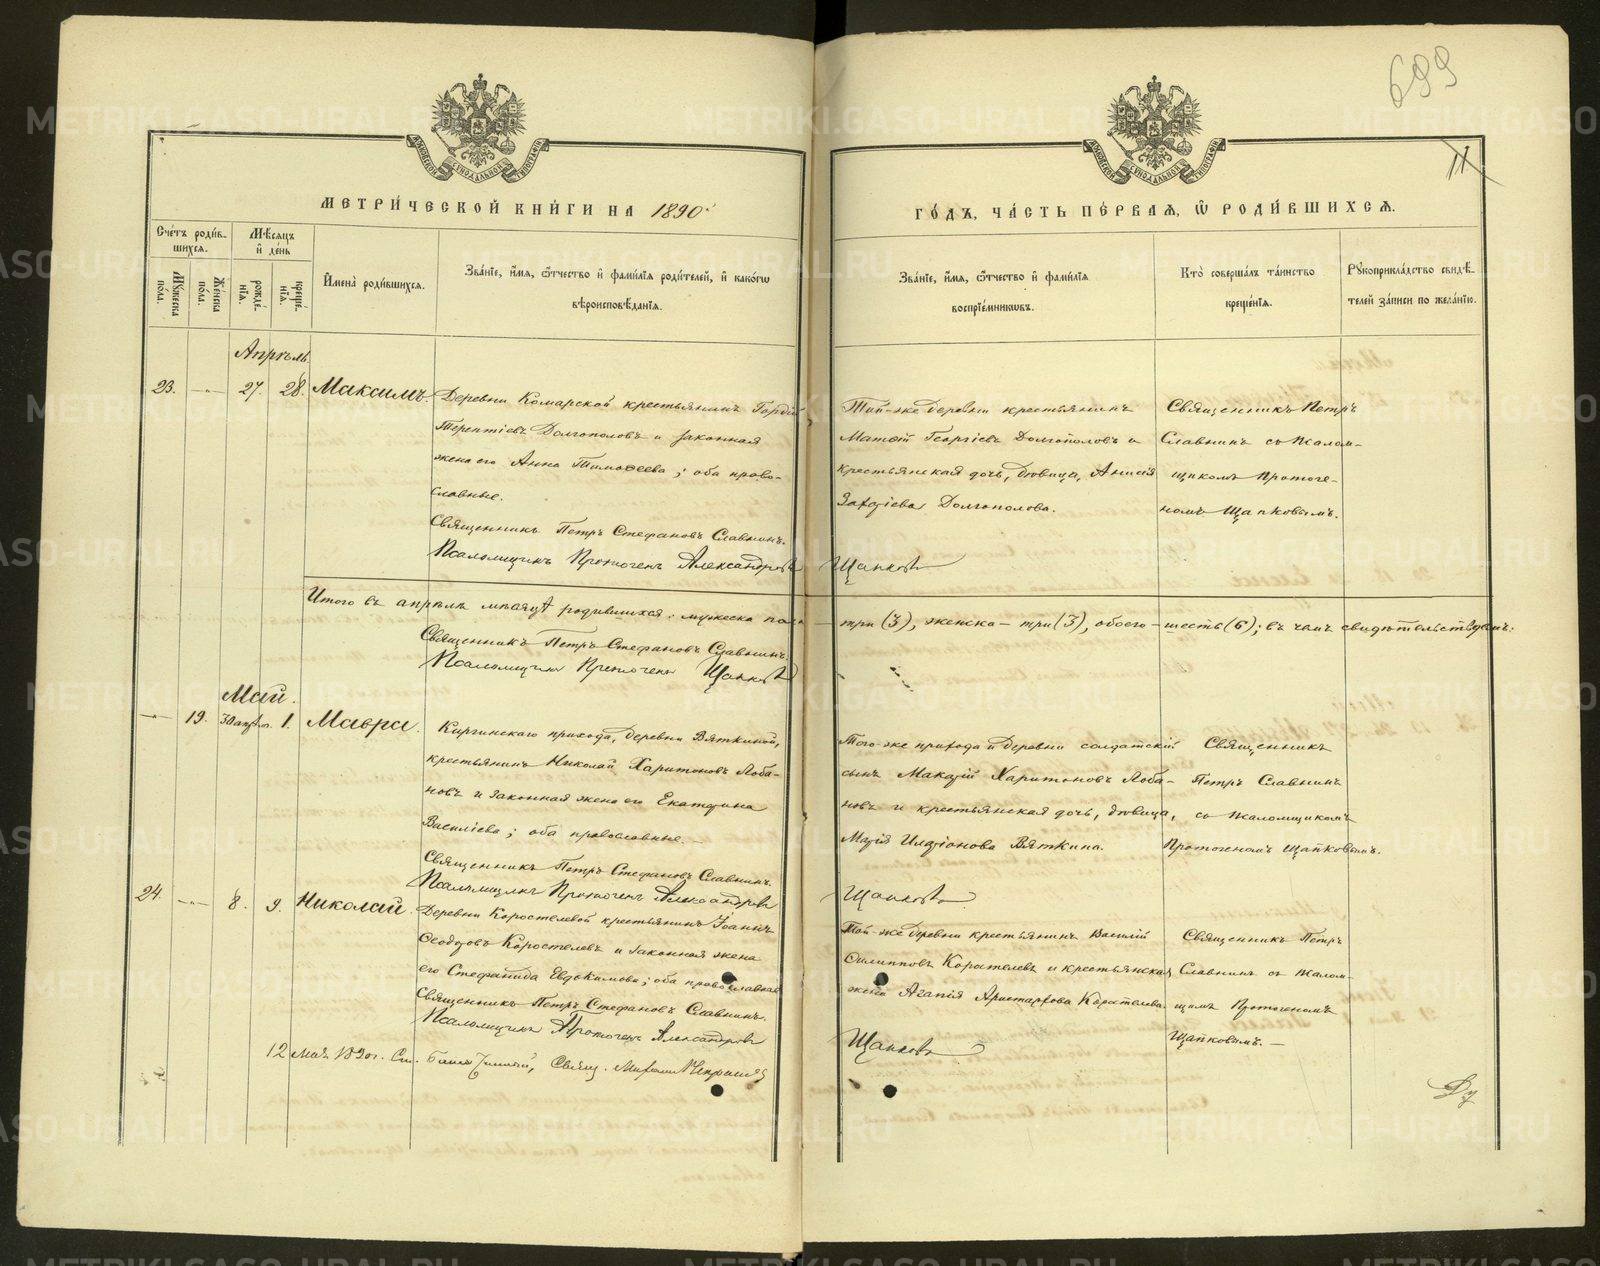 699
11
МОСКОВСКОЙ СѴНОДАЛЬНОЙ ТИПОГРАФІИ
МОСКОВСКОЙ СѴНОДАЛЬНОЙ ТИПОГРАФІИ
МЕТРИ́ЧЕСКОЙ КНИ́ГИ НА 1890.
ГО́ДЪ, ЧА́СТЬ ПЕ́РВАЯ, Ѽ РОДИ́ВШИХСЯ.
Сче́тъ роди́в-
шихся.
Мѣ́сяцъ
й де́нь
Му́жеска
по́ла.
Же́нска
по́ла.
рожде́-
нїя.
креще́-
нїя.
Имена̀ роди́вшихся.
Зва́нїе, и́мя, ѻ́тчество й фами́лїя роди́телей, й како́гѡ
вѣроисповѣ́данїя.
Зва́нїе, и́мя, ѻ́тчество й фами́лїя
воспрїе́мникѡвъ.
Кто̀ соверша́лъ та́инство
креще́нїя.
Рукоприкла́дство свидѣ́-
телей за́писи по жела́нїю.
Апрѣль
23. — 27. 28. Максимъ.
Деревни Комарской крестьянинъ Гордій
Терентіевъ Долгополовъ и законная
жена его Анна Тимоѳеева; оба право-
славные.
Священникъ Петръ Стефановъ Славнинъ.
Псаломщикъ Протогенъ Александровъ
Той-же деревни крестьянинъ
Матѳій Георгіевъ Долгополовъ и
крестьянская дочь, дѣвица, Анисія
Захаріева Долгополова.
Щапковъ
Священникъ Петръ
Славнинъ съ псалом-
щикомъ Протоге-
номъ Щапковымъ.
Итого въ апрѣлѣ мѣсяцѣ родившихся: мужеска пола — три (3), женска — три (3), обоего — шесть (6); въ чемъ свидѣтельствуемъ:
Священникъ Петръ Стефановъ Славнинъ.
Псаломщикъ Протогенъ Щапковъ
Май.
— 19. 30 апр. 1. Мавра.
Киргинскаго прихода, деревни Вяткиной,
крестьянинъ Николай Харитоновъ Лоба-
новъ и законная жена его Екатерина
Василіева; оба православные.—
Священникъ Петръ Стефановъ Славнинъ.
Псаломщикъ Протогенъ Александровъ
Того-же прихода и деревни солдатскій
сынъ Макарій Харитоновъ Лоба-
новъ и крестьянская дочь, дѣвица,
Марія Иларіонова Вяткина.
Щапковъ
Священникъ
Петръ Славнинъ
съ псаломщикомъ
Протогеномъ Щапковымъ.
24. — 8. 9. Николай.
Деревни Коростелевой крестьянинъ Іоаннъ
Ѳеодоровъ Коростелевъ и законная жена
его Стефанида Евдокимова; оба православные
Священникъ Петръ Стефановъ Славнинъ.
Псаломщикъ Протогенъ Александровъ
Той-же деревни крестьянинъ Василій
Филипповъ Коростелевъ и крестьянская
жена Агапія Аристархова Коростелева.
Щапковъ
Священникъ Петръ
Славнинъ съ псалом-
щикомъ Протогеномъ
Щапковымъ.—
12 мая 1890 г.
METRIKI.GASO-URAL.RU